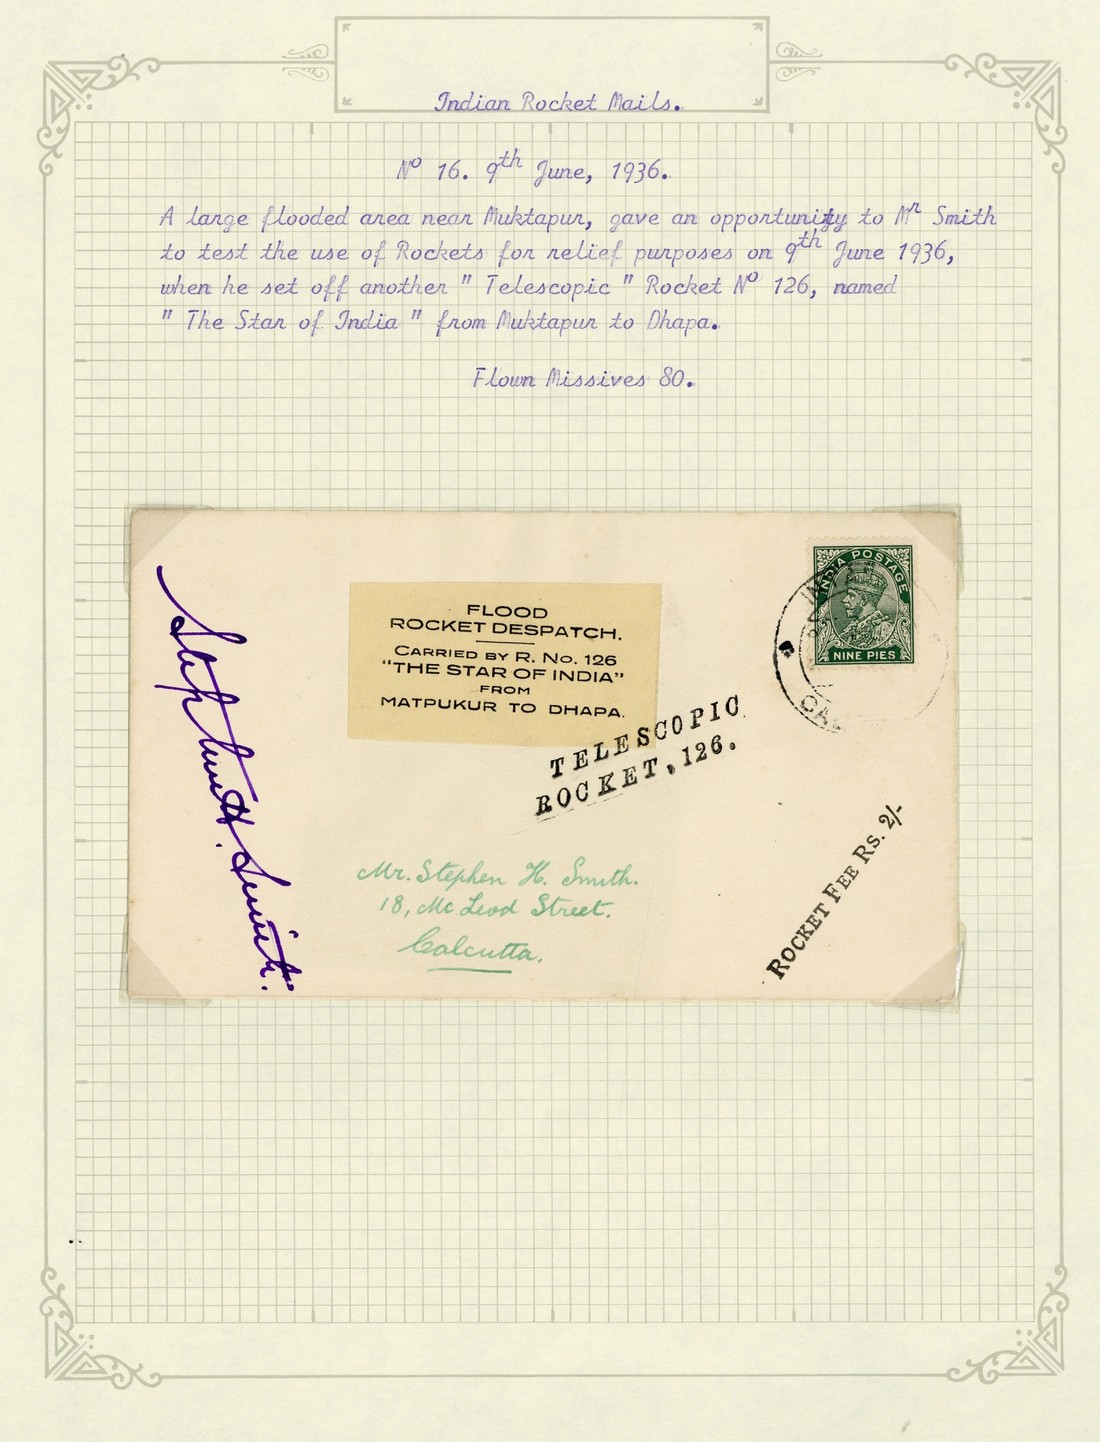 Indian Rocket Mails.
Nº 16. 9th June, 1936.
A large flooded area near Muktapur, gave an opportunity to Mr Smith
to test the use of Rockets for relief purposes on 9th June 1936,
when he set off another " Telescopic " Rocket Nº 126, named
" The Star of India " from Muktapur to Dhapa.
Flown Missives 80.
INDIA POSTAGE
NINE PIES
FLOOD
ROCKET DESPATCH.
CARRIED BY R. No. 126
"THE STAR OF INDIA"
FROM
MATPUKUR TO DHAPA.
TELESCOPIC
ROCKET, 126.
Stephen H. Smith.
Mr. Stephen H. Smith.
18, Mc Leod Street.
Calcutta.
ROCKET FEE RS. 2/-